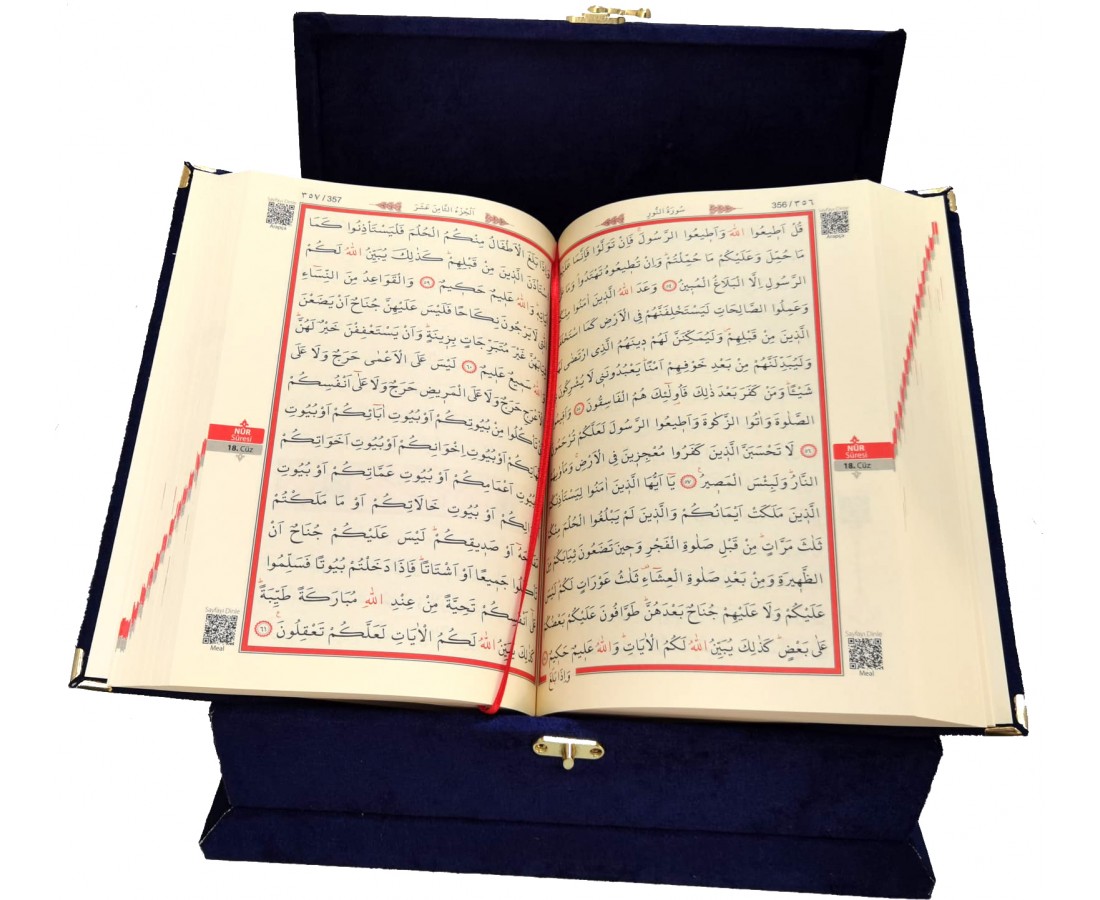 356 / ٣٥٦
سُورَةُ النُّورِ
Sayfayı Dinle
Arapça
قُلْ اَطٖيعُوا اللّٰهَ وَاَطٖيعُوا الرَّسُولَۚ فَاِنْ تَوَلَّوْا فَاِنَّمَا
مَا حُمِّلَ وَعَلَيْكُمْ مَا حُمِّلْتُمْۜ وَاِنْ تُطٖيعُوهُ تَهْتَدُواۜ وَمَا
الرَّسُولِ اِلَّا الْبَلَاغُ الْمُبٖينُ ﴿٥٤﴾ وَعَدَ اللّٰهُ الَّذٖينَ اٰمَنُوا
وَعَمِلُوا الصَّالِحَاتِ لَيَسْتَخْلِفَنَّهُمْ فِي الْاَرْضِ كَمَا
الَّذٖينَ مِنْ قَبْلِهِمْۖ وَلَيُمَكِّنَنَّ لَهُمْ دٖينَهُمُ الَّذِي ارْتَضٰى
وَلَيُبَدِّلَنَّهُمْ مِنْ بَعْدِ خَوْفِهِمْ اَمْنًاۜ يَعْبُدُونَنٖي لَا يُشْرِكُونَ
شَيْـًٔاۜ وَمَنْ كَفَرَ بَعْدَ ذٰلِكَ فَاُو۬لٰٓئِكَ هُمُ الْفَاسِقُونَ ﴿٥٥﴾
الصَّلٰوةَ وَاٰتُوا الزَّكٰوةَ وَاَطٖيعُوا الرَّسُولَ لَعَلَّكُمْ تُرْحَمُونَ
﴿٥٦﴾ لَا تَحْسَبَنَّ الَّذٖينَ كَفَرُوا مُعْجِزٖينَ فِي الْاَرْضِۚ
النَّارُۜ وَلَبِئْسَ الْمَصٖيرُ۟ ﴿٥٧﴾ يَٓا اَيُّهَا الَّذٖينَ اٰمَنُوا
الَّذٖينَ مَلَكَتْ اَيْمَانُكُمْ وَالَّذٖينَ لَمْ يَبْلُغُوا الْحُلُمَ
ثَلٰثَ مَرَّاتٍۜ مِنْ قَبْلِ صَلٰوةِ الْفَجْرِ وَحٖينَ تَضَعُونَ ثِيَابَكُمْ
الظَّهٖيرَةِ وَمِنْ بَعْدِ صَلٰوةِ الْعِشَٓاءِ۠ ثَلٰثُ عَوْرَاتٍ لَكُمْۜ
عَلَيْكُمْ وَلَا عَلَيْهِمْ جُنَاحٌ بَعْدَهُنَّۜ طَوَّافُونَ عَلَيْكُمْ
عَلٰى بَعْضٍۜ كَذٰلِكَ يُبَيِّنُ اللّٰهُ لَكُمُ الْاٰيَاتِۜ وَاللّٰهُ عَلٖيمٌ حَكٖيمٌ
وَاِذَا بَلَغَ
NÛR
Sûresi
18. Cüz
Sayfayı Dinle
Meal
٣٥٧ / 357
اَلْجُزْءُ الثَّامِنَ عَشَرَ
Arapça
بَلَغَ الْاَطْفَالُ مِنْكُمُ الْحُلُمَ فَلْيَسْتَأْذِنُوا كَمَا
الَّذٖينَ مِنْ قَبْلِهِمْۜ كَذٰلِكَ يُبَيِّنُ اللّٰهُ لَكُمْ
وَاللّٰهُ عَلٖيمٌ حَكٖيمٌ ﴿٥٩﴾ وَالْقَوَاعِدُ مِنَ النِّسَٓاءِ
لَا يَرْجُونَ نِكَاحًا فَلَيْسَ عَلَيْهِنَّ جُنَاحٌ اَنْ يَضَعْنَ
غَيْرَ مُتَبَرِّجَاتٍ بِزٖينَةٍۜ وَاَنْ يَسْتَعْفِفْنَ خَيْرٌ لَهُنَّۜ
سَمٖيعٌ عَلٖيمٌ ﴿٦٠﴾ لَيْسَ عَلَى الْاَعْمٰى حَرَجٌ وَلَا عَلَى
حَرَجٌ وَلَا عَلَى الْمَرٖيضِ حَرَجٌ وَلَا عَلٰٓى اَنْفُسِكُمْ
تَأْكُلُوا مِنْ بُيُوتِكُمْ اَوْ بُيُوتِ اٰبَٓائِكُمْ اَوْ بُيُوتِ
اَوْ بُيُوتِ اِخْوَانِكُمْ اَوْ بُيُوتِ اَخَوَاتِكُمْ
بُيُوتِ اَعْمَامِكُمْ اَوْ بُيُوتِ عَمَّاتِكُمْ اَوْ بُيُوتِ
اَوْ بُيُوتِ خَالَاتِكُمْ اَوْ مَا مَلَكْتُمْ
اَوْ صَدٖيقِكُمْۜ لَيْسَ عَلَيْكُمْ جُنَاحٌ اَنْ
جَمٖيعًا اَوْ اَشْتَاتًاۜ فَاِذَا دَخَلْتُمْ بُيُوتًا فَسَلِّمُوا
اَنْفُسِكُمْ تَحِيَّةً مِنْ عِنْدِ اللّٰهِ مُبَارَكَةً طَيِّبَةًۜ
كَذٰلِكَ يُبَيِّنُ اللّٰهُ لَكُمُ الْاٰيَاتِ لَعَلَّكُمْ تَعْقِلُونَ۟ ﴿٦١﴾
NÛR
Sûresi
18. Cüz
Sayfayı Dinle
Meal